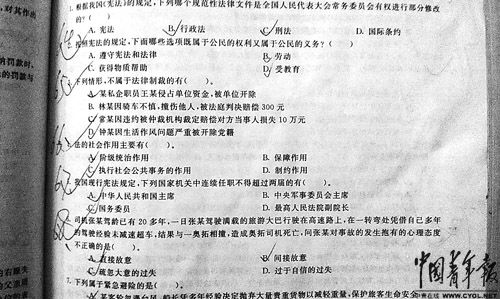 1. 根据我国《宪法》的规定，下列哪个规范性法律文件是全国人民代表大会常务委员会有权进行部分修改
的？（ ）。
A. 宪法 B. 行政法 C. 刑法 D. 国际条约
按照宪法的规定，下面哪些选项既属于公民的权利又属于公民的义务？（ ）。
A. 遵守宪法和法律 B. 劳动
C. 获得物质帮助 D. 受教育
下列情形，不属于法律制裁的有（ ）。
A. 某私企职员王某侵占单位资金，被单位开除
B. 林某因骑车不慎，撞伤他人，被法庭判决赔偿 300 元
C. 常某因违约被仲裁机构裁定赔偿对方当事人损失 10 万元
D. 钟某因生活作风问题严重被开除党籍
法的社会作用主要有（ ）。
A. 阶级统治作用 B. 保障作用
C. 执行社会公共事务的作用 D. 制约作用
我国现行宪法规定，下列国家机关中连续任职不得超过两届的有（ ）。
A. 中华人民共和国主席 B. 中央军事委员会主席
C. 国务委员 D. 最高人民法院副院长
司机张某驾龄已有 20 多年，一日张某驾驶满载的旅游大巴行驶在高速路上，在一转弯处凭借自己多年
的驾驶经验未减速超车，结果与一奥拓相撞，造成奥拓司机死亡，问张某对事故的发生抱有的心理态度
不正确的是（ ）。
A. 直接故意 B. 间接故意
C. 疏忽大意的过失 D. 过于自信的过失
7. 下列属于紧急避险的是（ ）。
中国青年报
WWW.CYOL.NET